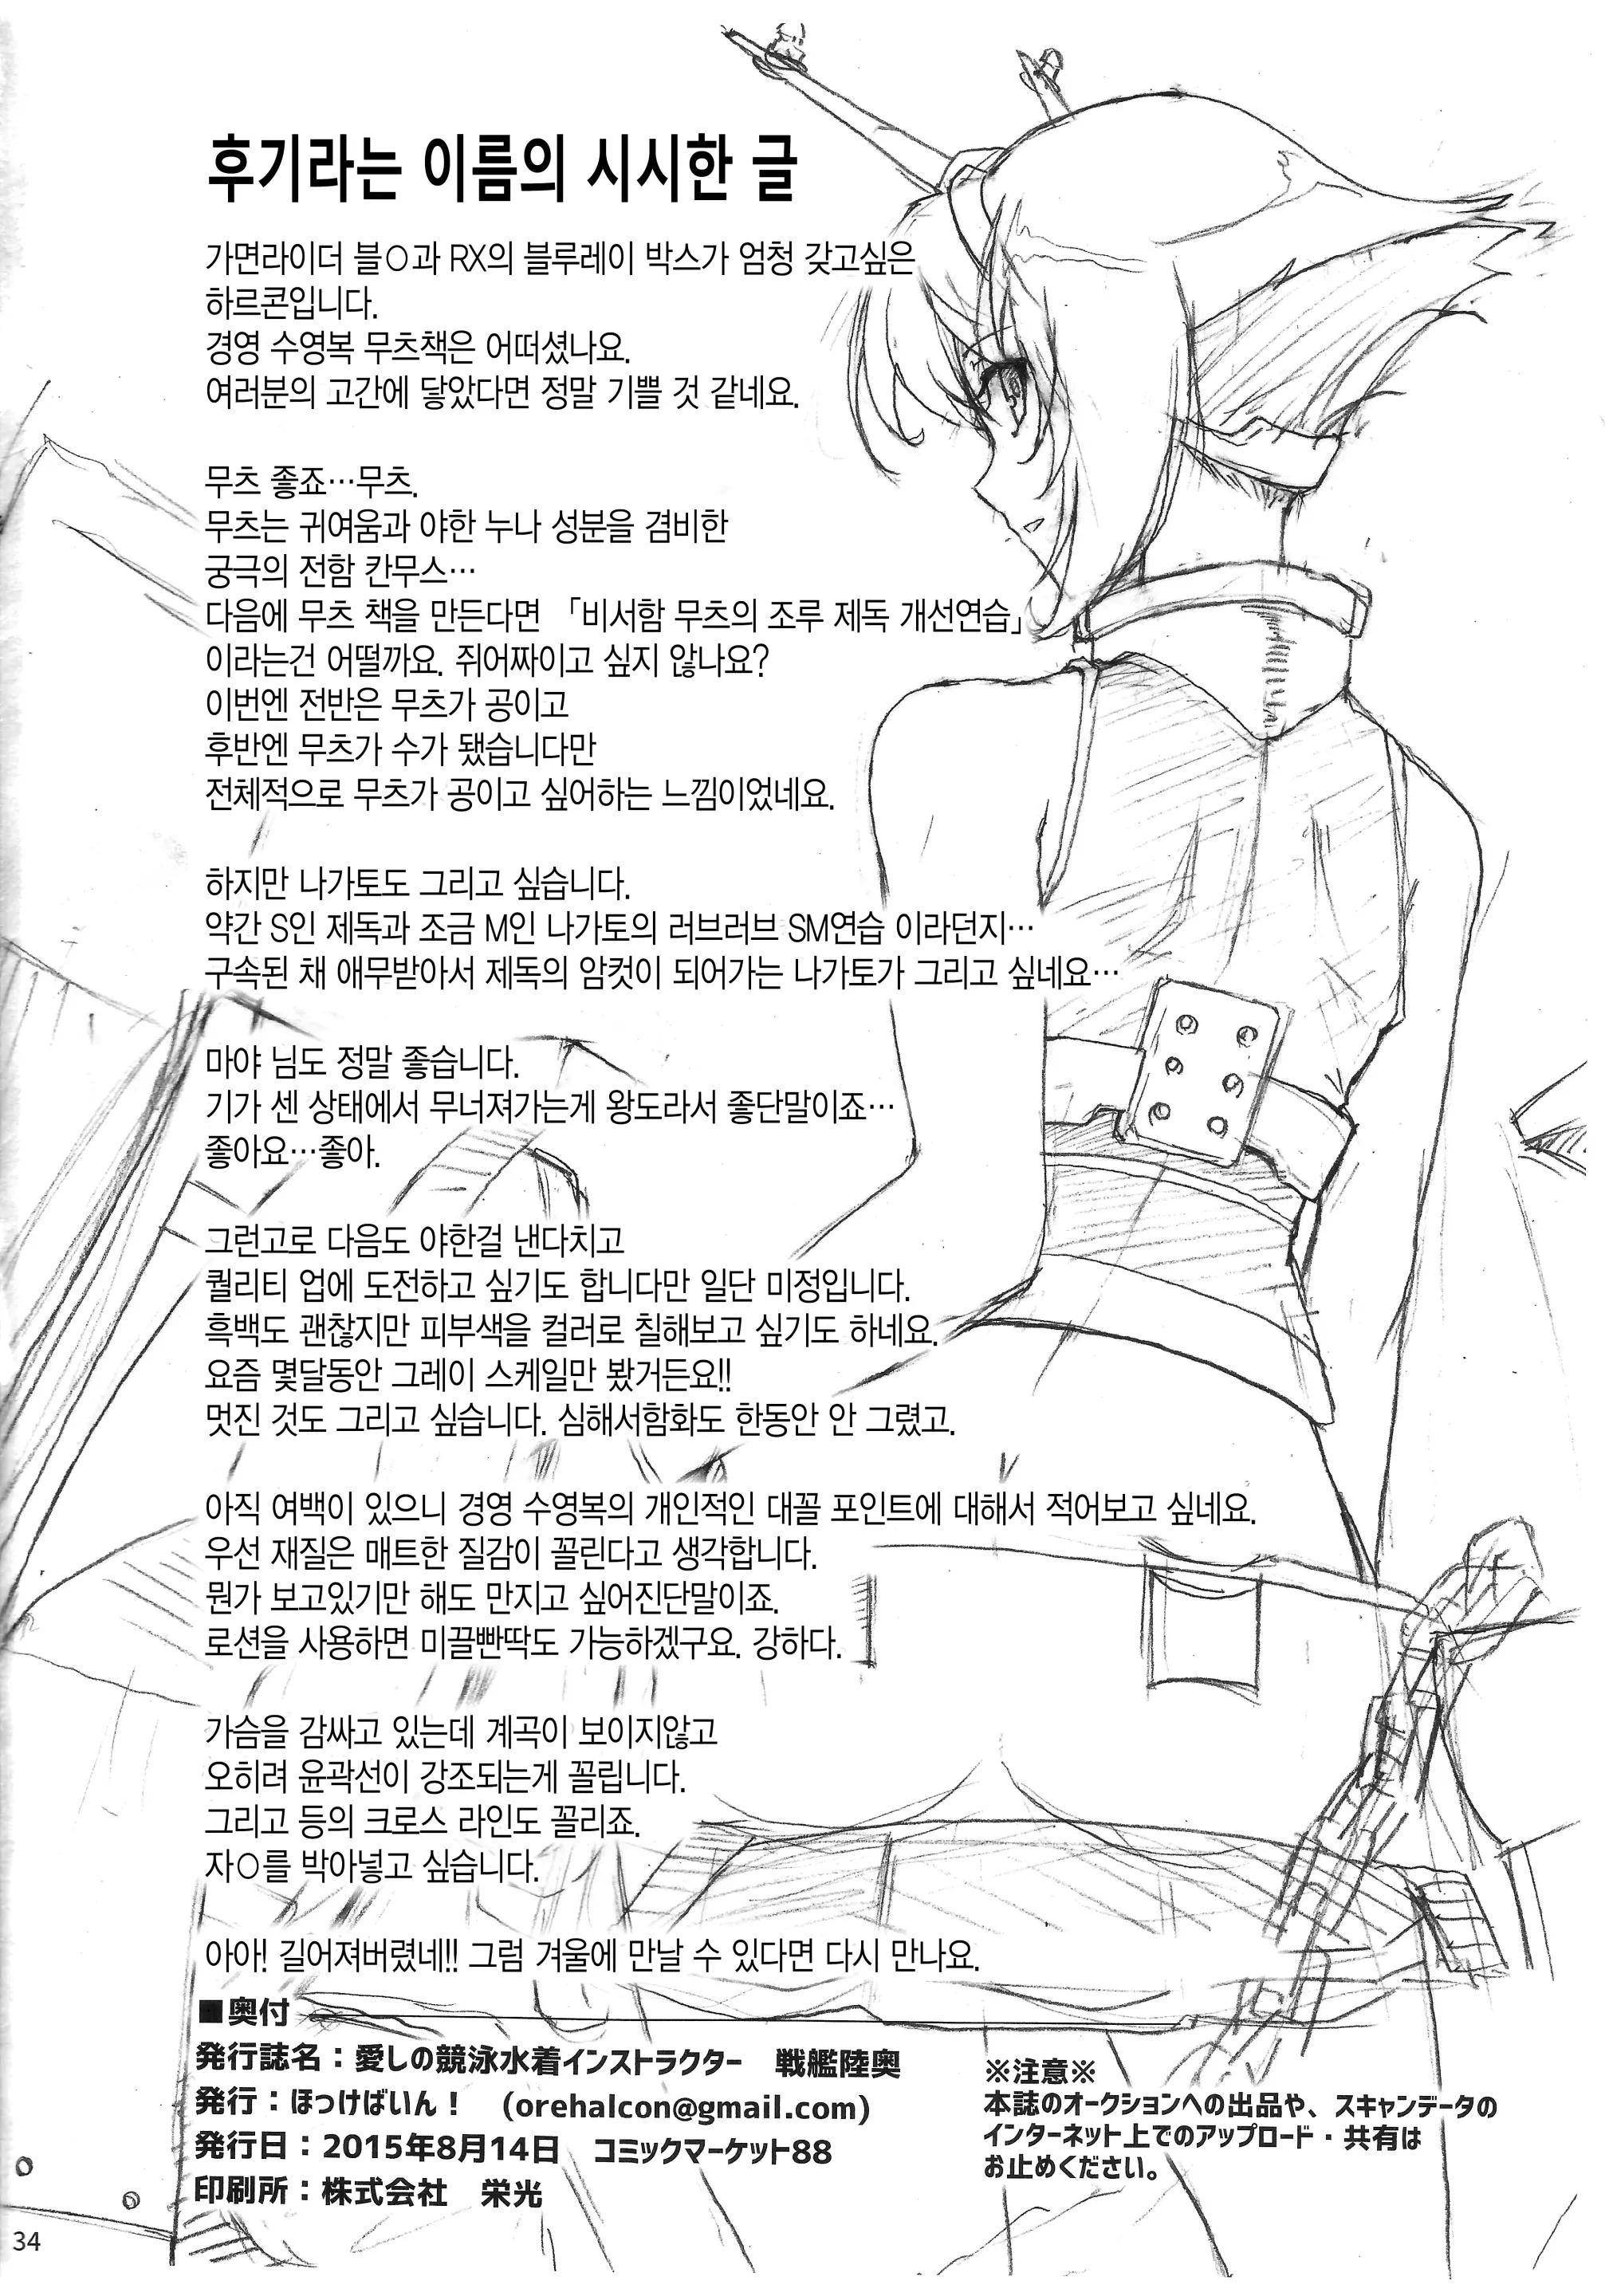 후기라는 이름의 시시한 글
가면라이더 블○과 RX의 블루레이 박스가 엄청 갖고싶은
하르콘입니다.
경영 수영복 무츠책은 어떠셨나요.
여러분의 고간에 닿았다면 정말 기쁠 것 같네요.
무츠 좋죠…무츠.
무츠는 귀여움과 야한 누나 성분을 겸비한
궁극의 전함 칸무스…
다음에 무츠 책을 만든다면 「비서함 무츠의 조루 제독 개선연습」
이라는건 어떨까요. 쥐어짜이고 싶지 않나요?
이번엔 전반은 무츠가 공이고
후반엔 무츠가 수가 됐습니다만
전체적으로 무츠가 공이고 싶어하는 느낌이었네요.
하지만 나가토도 그리고 싶습니다.
약간 S인 제독과 조금 M인 나가토의 러브러브 SM연습 이라던지…
구속된 채 애무받아서 제독의 암컷이 되어가는 나가토가 그리고 싶네요…
마야 님도 정말 좋습니다.
기가 센 상태에서 무너져가는게 왕도라서 좋단말이죠…
좋아요…좋아.
그런고로 다음도 야한걸 낸다치고
퀄리티 업에 도전하고 싶기도 합니다만 일단 미정입니다.
흑백도 괜찮지만 피부색을 컬러로 칠해보고 싶기도 하네요.
요즘 몇달동안 그레이 스케일만 봤거든요!!
멋진 것도 그리고 싶습니다. 심해서함화도 한동안 안 그렸고.
아직 여백이 있으니 경영 수영복의 개인적인 대꼴 포인트에 대해서 적어보고 싶네요.
우선 재질은 매트한 질감이 꼴린다고 생각합니다.
뭔가 보고있기만 해도 만지고 싶어진단말이죠.
로션을 사용하면 미끌빤딱도 가능하겠구요. 강하다.
가슴을 감싸고 있는데 계곡이 보이지않고
오히려 윤곽선이 강조되는게 꼴립니다.
그리고 등의 크로스 라인도 꼴리죠.
자○를 박아넣고 싶습니다.
아아! 길어져버렸네!! 그럼 겨울에 만날 수 있다면 다시 만나요.
■奥付
発行誌名：愛しの競泳水着インストラクター　戦艦陸奥
発行：ほっけばいん！　(orehalcon@gmail.com)
発行日：2015年8月14日　コミックマーケット88
印刷所：株式会社　栄光
※注意※
本誌のオークションへの出品や、スキャンデータの
インターネット上でのアップロード・共有は
お止めください。
34